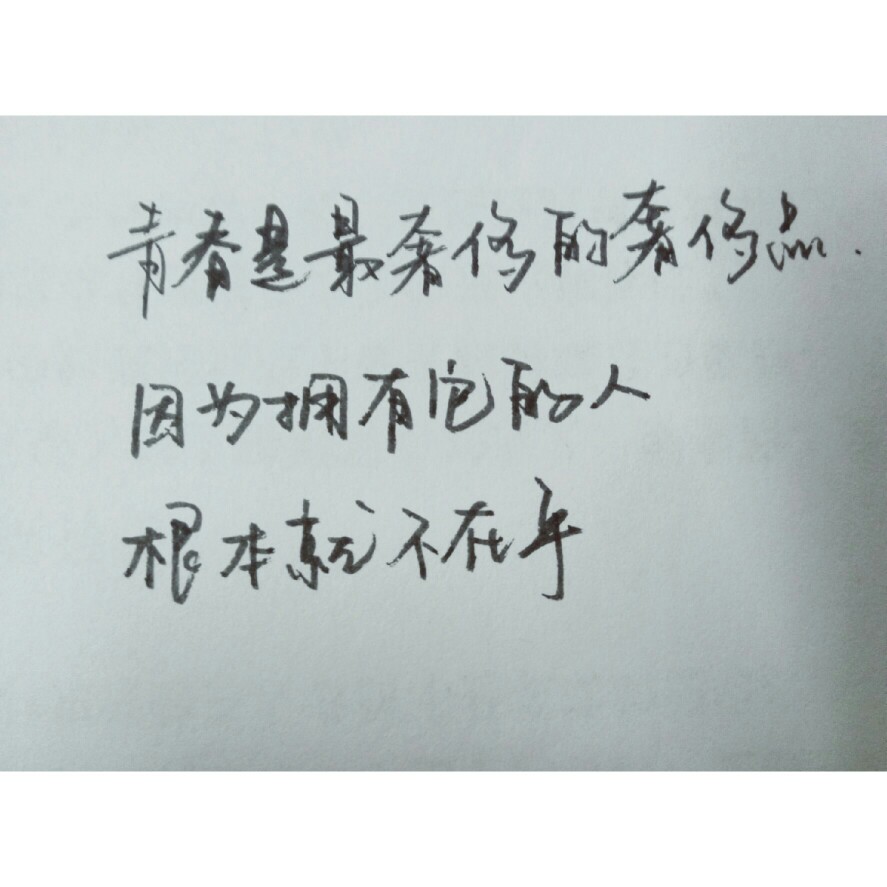 青春是最奢侈的奢侈品.
因为拥有它的人
根本就不在乎